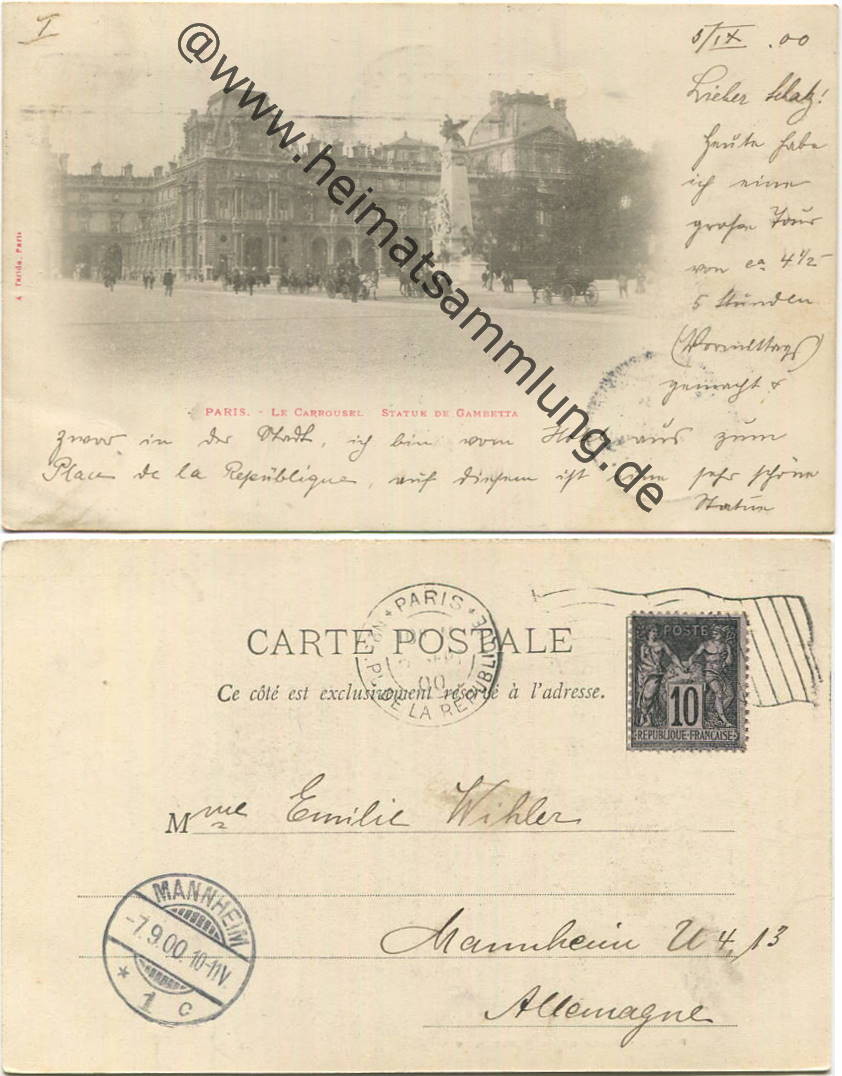 I
5/IX .00
Lieber Schatz!
Heute habe
ich eine
große Tour
von ca 4½-
5 Stunden
(Vormittags)
gemacht &
zwar in der Stadt, ich bin vom aus zum
Place de la République, auf diesem ist eine sehr schöne
Statue
A Taride, Paris
PARIS. - LE CARROUSEL STATUE DE GAMBETTA
@www.heimatsammlung.de
PARIS
PL. DE LA REPUBLIQUE
00
CARTE POSTALE
Ce côté est exclusivement réservé à l'adresse.
POSTE
10
REPUBLIQUE-FRANÇAISE
Mme Emilie Wihler
Mannheim U 4, 13
Allemagne
MANNHEIM
-7.9.00.10-11V.
* 1 c